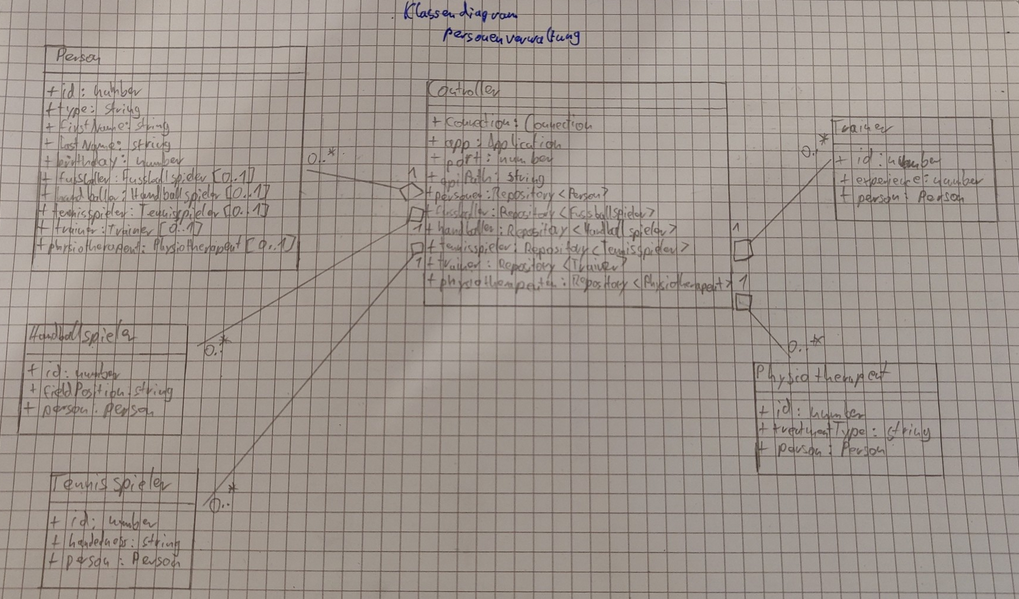 Klassendiagram
Personenverwaltung
Person
+ id: number
+ type: string
+ firstName: string
+ lastName: string
+ birthday: number
+ fussballer: Fussballspieler [0..1]
+ handballer: Handballspieler [0..1]
+ tennisspieler: Tennisspieler [0..1]
+ trainer: Trainer [0..1]
+ physiotherapeut: Physiotherapeut [0..1]
0..*
1
Controller
+ connection: Connection
+ app: Application
+ port: number
+ apiPath: string
+ personen: Repository <Person>
+ fussballer: Repository <Fussballspieler>
+ handballer: Repository <Handballspieler>
+ tennisspieler: Repository <Tennisspieler>
+ trainer: Repository <Trainer>
+ physiotherapeuten: Repository <Physiotherapeut>
1
1
Trainer
+ id: number
+ experience: number
+ person: Person
0..*
1
1
0..*
Handballspieler
+ id: number
+ fieldPosition: string
+ person: person
0..*
Physiotherapeut
+ id: number
+ treatmentType: string
+ person: Person
Tennisspieler
+ id: number
+ handedness: string
+ person: Person
0..*